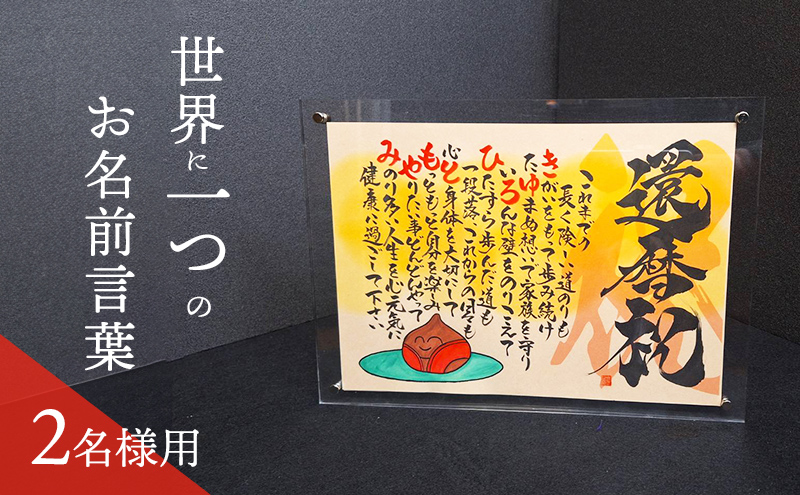 世界に一つの
お名前言葉
還暦祝
これまでの
長く険しい道のりも
きがいをもって歩み続け
たゆまぬ想いで家族を守り
いろんな壁をのりこえて
ひたすら歩んだ道も
一段落これからの日々も
心と身体を大切にして
もっともっと自分を楽しみ
やりたい事どんどんやって
みのり多い人生を心元気に
健康に過ごして下さい
2名様用